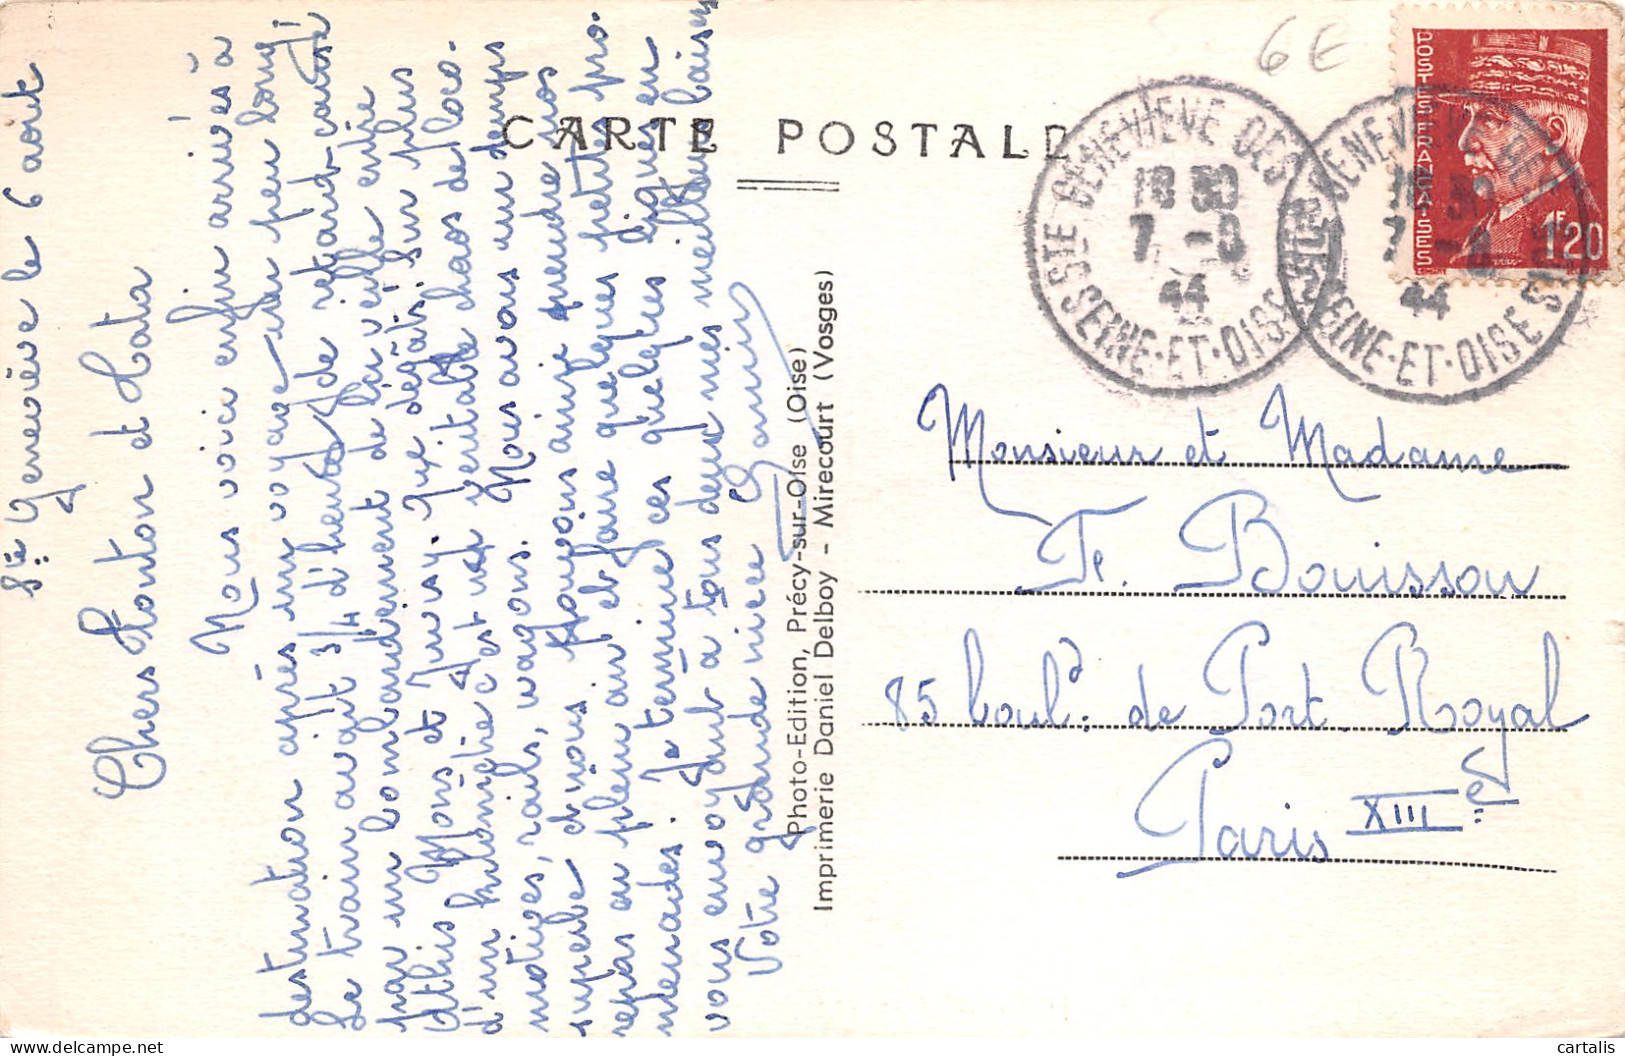 Ste Geneviève le 6 août
Chers Tonton et Tata
Nous voici enfin arrivés à
destination après un voyage un peu long
Le train avait 3/4 d'heure de retard causé
par un bombardement de la veille entre
Athis Mons et Juvisy. Que dégâts. Sur plus
d'un kilomètre c'est un véritable chaos de loco-
motives, rails, wagons. Nous avons un temps
superbe et nous pouvons ainsi prendre nos
repas en plein air et faire quelques petites pro-
menades. Je termine ces quelques lignes en
vous envoyant à tous deux mes meilleurs baisers
Votre grande nièce
CARTE POSTALE
Photo-Edition, Précy-sur-Oise (Oise)
Imprimerie Daniel Delboy - Mirecourt (Vosges)
6E
STE GENEVIEVE DES
18 30
7 -8
44
SEINE-ET-OISE
GENEVIEVE DES
18 30
7 -8
44
SEINE-ET-OISE
POSTES FRANCAISES
1F20
Monsieur et Madame
F. Bouisson
85 boul.d de Port Royal
Paris XIIIe
cartalis